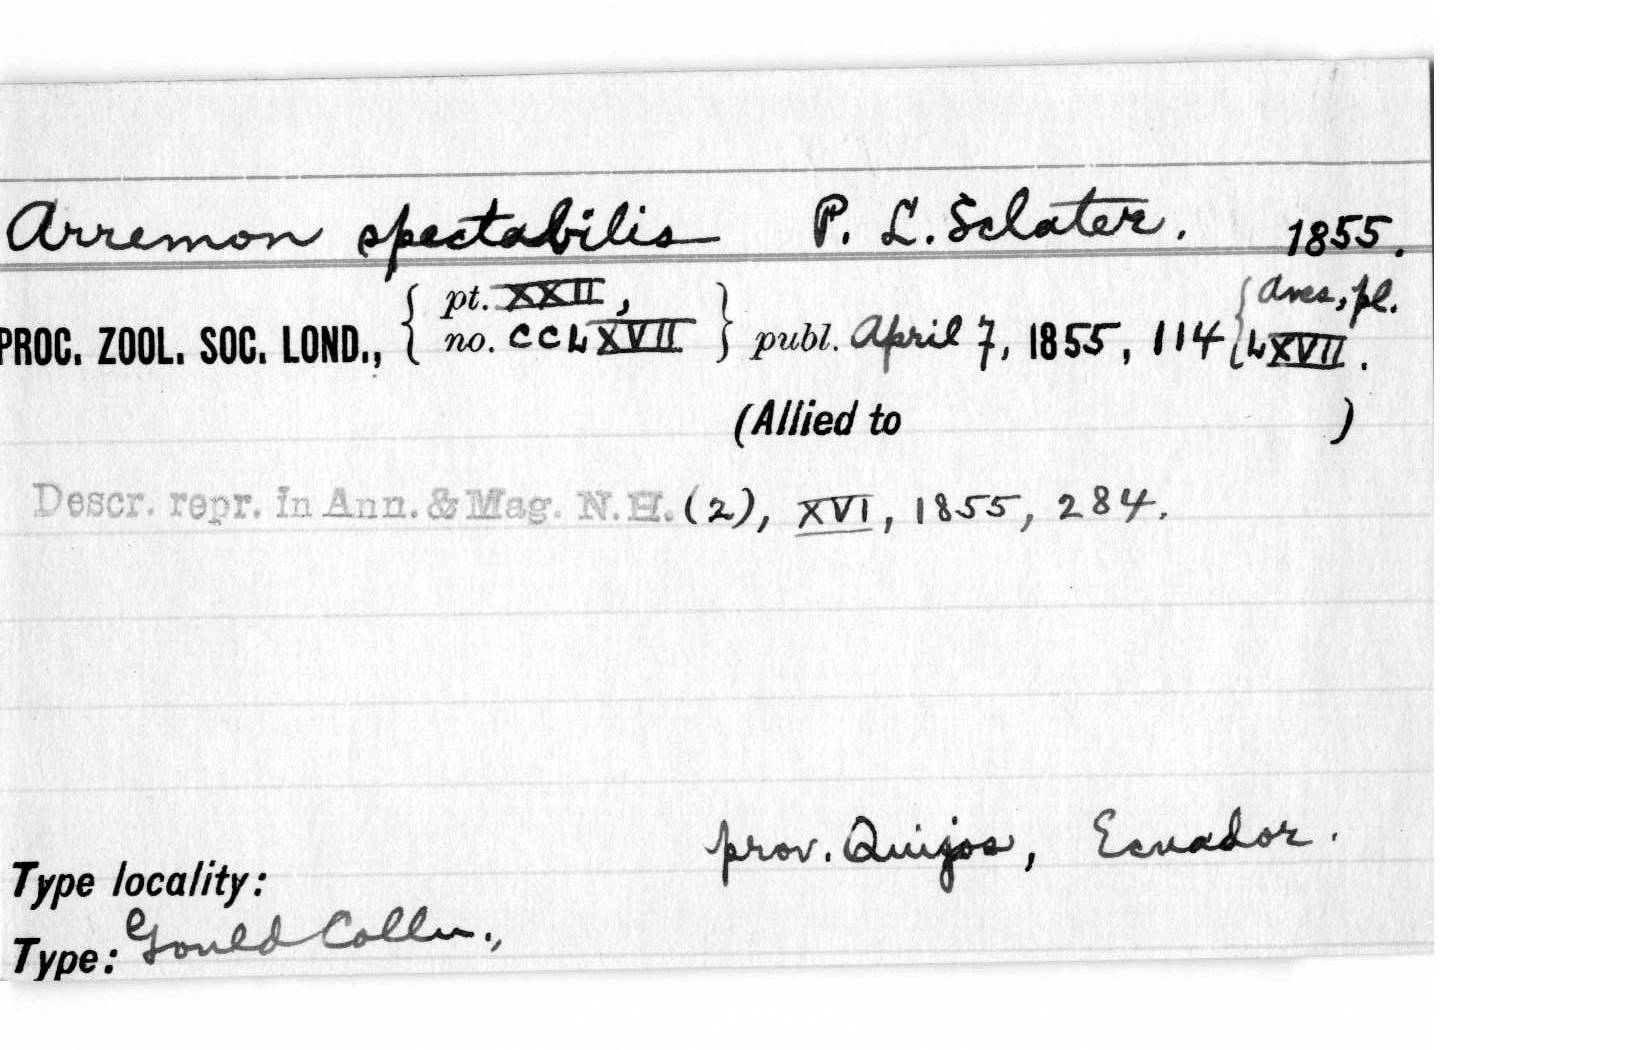 Arremon spectabilis P. L. Sclater. 1855.
PROC. ZOOL. SOC. LOND., { pt. XXII, no. CCLXVII } publ. April 7, 1855, 114 { Aves, pl. LXVII.
(Allied to )
Descr. repr. in Ann. & Mag. N.H. (2), XVI, 1855, 284.
Type locality: prov. Quijos, Ecuador.
Type: Gould Colln.,